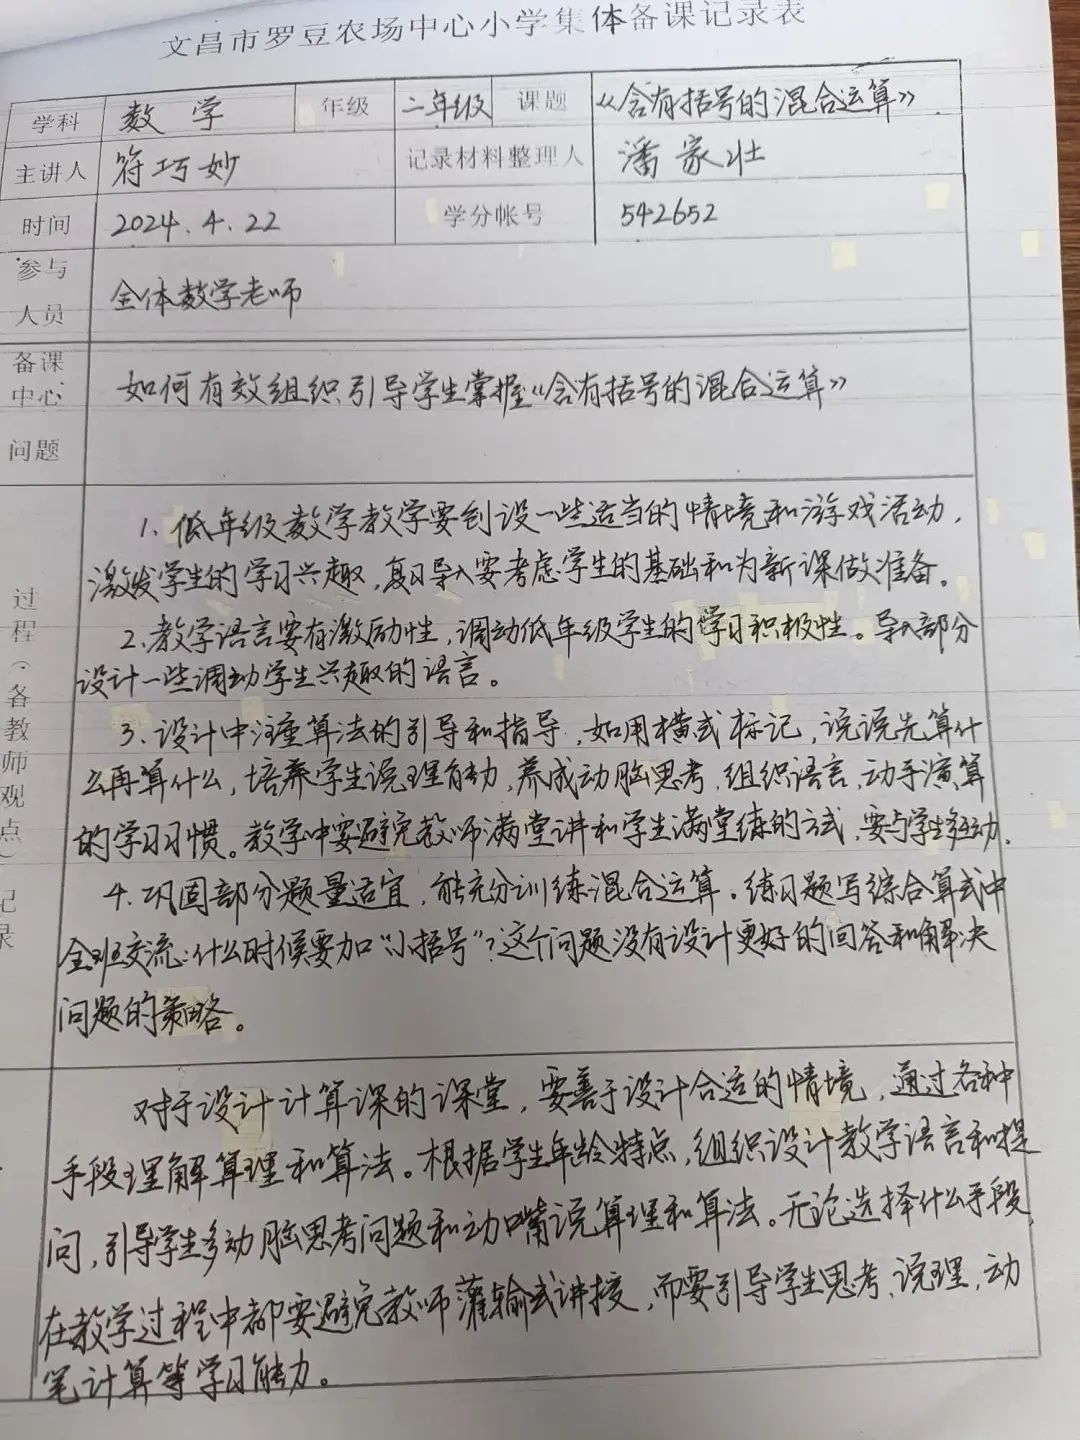 文昌市罗豆农场中心小学集体备课记录表
学科 数学 年级 二年级 课题 《含有括号的混合运算》
主讲人 符巧妙 记录材料整理人 潘家壮
时间 2024.4.22 学分帐号 542652
参与人员 全体数学老师
备课中心问题 如何有效组织引导学生掌握《含有括号的混合运算》
过程(各教师观点)记录
1、低年级数学教学要创设一些适当的情境和游戏活动，
激发学生的学习兴趣，复习导入要考虑学生的基础和为新课做准备。
2、教学语言要有激励性，调动低年级学生的学习积极性。导入部分
设计一些调动学生兴趣的语言。
3、设计中注重算法的引导和指导，如用横式标记，说说先算什
么再算什么，培养学生说理能力，养成动脑思考，组织语言，动手演算
的学习习惯。教学中要避免教师满堂讲和学生满堂练的方式，要与学生多互动。
4、巩固部分题量适宜，能充分训练混合运算。练习题写综合算式中
全班交流：什么时候要加“小括号”？这个问题没有设计更好的回答和解决
问题的策略。
对于设计计算课的课堂，要善于设计合适的情境，通过各种
手段理解算理和算法。根据学生年龄特点，组织设计教学语言和提
问，引导学生多动脑思考问题和动嘴说算理和算法。无论选择什么手段，
在教学过程中都要避免教师灌输式讲授，而要引导学生思考、说理，动
笔计算等学习能力。